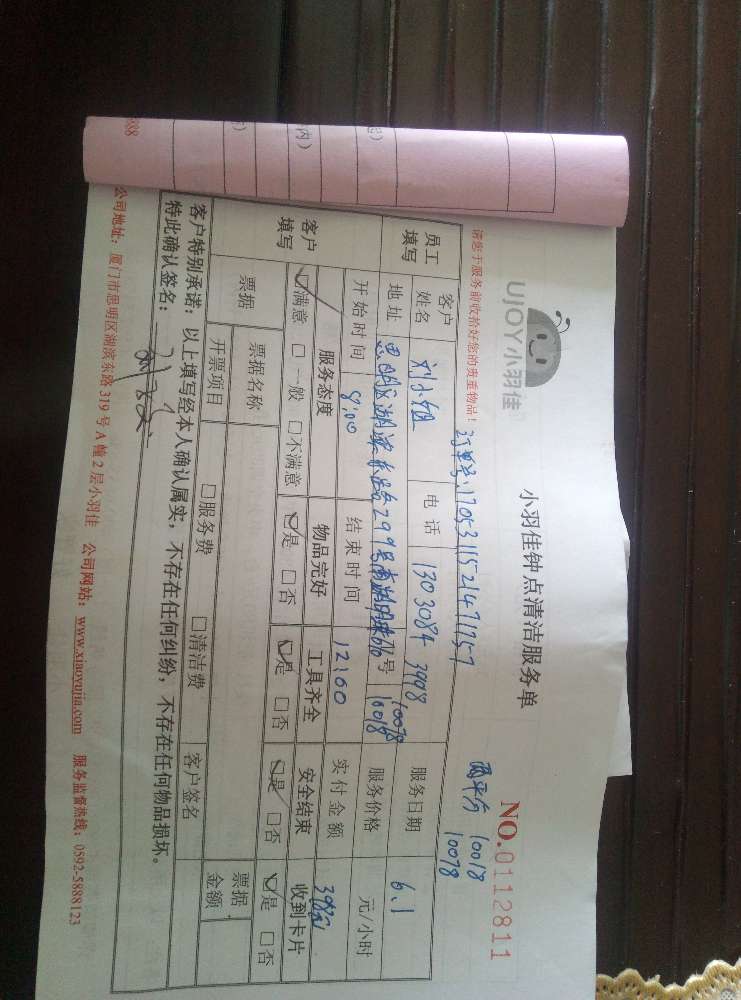 UJOY小羽佳
小羽佳钟点清洁服务单
NO.0112811
请您于服务前收拾好您的贵重物品!
订单号:1705311521471757
两平分 10018
10078
员工填写 客户姓名 刘小姐 电话 13030843998 服务日期 6.1
地址 思明区湖滨东路299号南湖明珠 号 10078 10018 服务价格 元/小时
开始时间 8:00 结束时间 12:00 实付金额
客户填写 服务态度 物品完好 工具齐全 安全结束 收到卡片
☑满意 □一般 □不满意 ☑是 □否 ☑是 □否 ☑是 □否 ☑是 □否
票据 票据名称 □服务费 □清洁费 票据金额
开票项目 客户签名
客户特别承诺:以上填写经本人确认属实,不存在任何纠纷,不存在任何物品损坏。
特此确认签名:
公司地址:厦门市思明区湖滨东路319号A幢2层小羽佳 公司网站:www.xiaoyujia.com 服务监督热线:0592-5888123